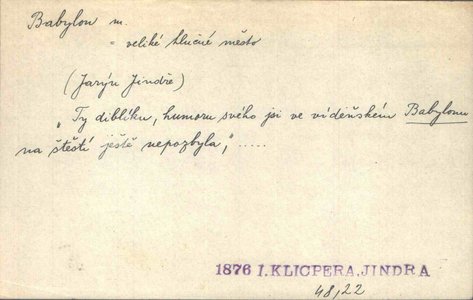 Babylon m.
= veliké hlučné město
(Jarýn Jindře)
„Ty diblíku, humoru svého jsi ve vídeňském Babylonu
na štěstí ještě nepozbyla," .....
1876 I. KLICPERA, JINDRA
48,22